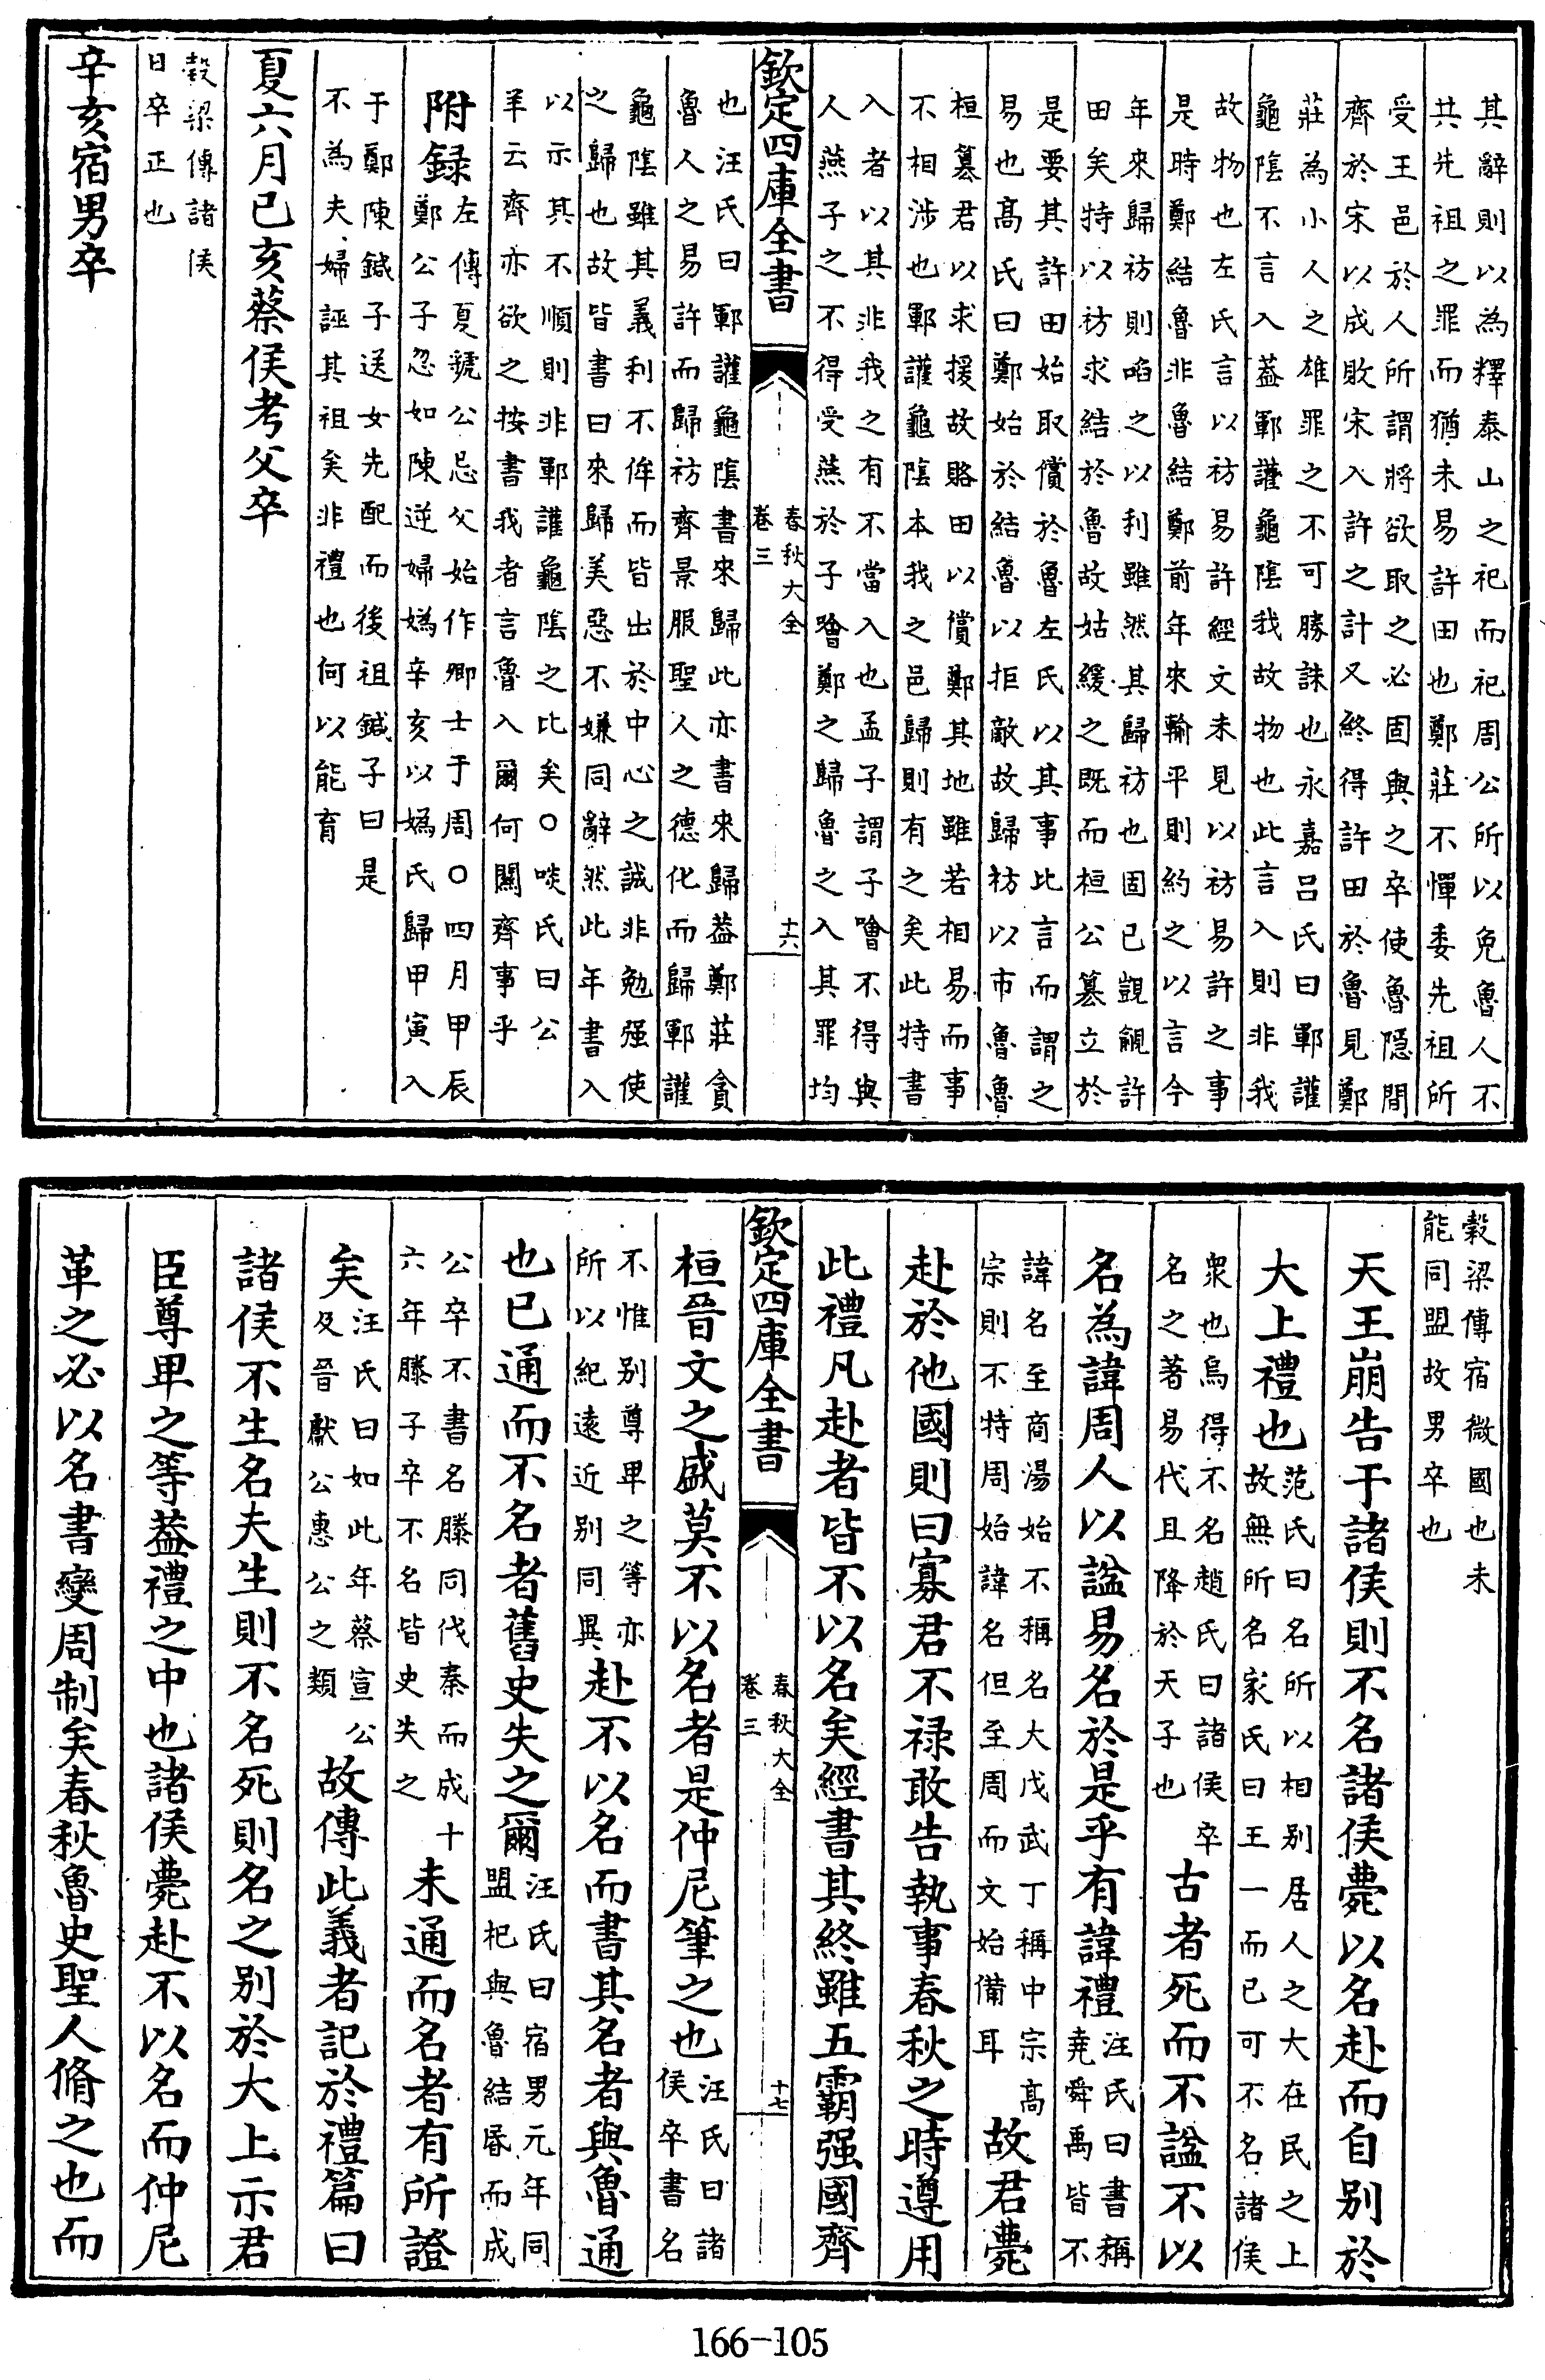 其辭則以為釋泰山之祀而祀周公所以免魯人不
共先祖之罪而猶未易許田也鄭莊不憚委先祖所
受王邑於人所謂將欲取之必固與之卒使魯隱間
齊於宋以成敗宋入許之計又終得許田於魯見鄭
莊為小人之雄罪之不可勝誅也永嘉呂氏曰鄆讙
龜陰不言入葢鄆讙龜陰我故物也此言入則非我
故物也左氏言以祊易許經文未見以祊易許之事
是時鄭結魯非魯結鄭前年來輸平則約之以言今
年來歸祊則啗之以利雖然其歸祊也固已覬覦許
田矣特以祊求結於魯故姑緩之既而桓公簒立於
是要其許田始取償於魯左氏以其事比言而謂之
易也髙氏曰鄭始於結魯以拒敵故歸祊以市魯魯
桓簒君以求援故賂田以償鄭其地雖若相易而事
不相涉也鄆讙龜陰本我之邑歸則有之矣此特書
入者以其非我之有不當入也孟子謂子噲不得與
人燕子之不得受燕於子噲鄭之歸魯之入其罪均
欽定四庫全書
春秋大全
卷三
十六
也汪氏曰鄆讙龜隂書來歸此亦書來歸葢鄭莊貪
魯人之易許而歸祊齊景服聖人之德化而歸鄆讙
龜陰雖其義利不侔而皆出於中心之誠非勉强使
之歸也故皆書曰來歸美惡不嫌同辭然此年書入
以示其不順則非鄆讙龜陰之比矣○啖氏曰公
羊云齊亦欲之按書我者言魯入爾何關齊事乎
附録
左傳夏虢公忌父始作卿士于周○四月甲辰
鄭公子忽如陳逆婦媯辛亥以媯氏歸甲寅入
于鄭陳鍼子送女先配而後祖鍼子曰是
不為夫婦誣其祖矣非禮也何以能育
夏六月已亥蔡侯考父卒
穀梁傳諸侯
日卒正也
辛亥宿男卒
穀梁傳宿微國也未
能同盟故男卒也
天王崩告于諸侯則不名諸侯薨以名赴而自别於
大上禮也
范氏曰名所以相别居人之大在民之上
故無所名家氏曰王一而已可不名諸侯
衆也烏得不名趙氏曰諸侯卒
名之著易代且降於天子也
古者死而不諡不以
名為諱周人以諡易名於是乎有諱禮
汪氏曰書稱
堯舜禹皆不
諱名至商湯始不稱名大戊武丁稱中宗髙
宗則不特周始諱名但至周而文始備耳
故君薨
赴於他國則曰寡君不禄敢告執事春秋之時遵用
此禮凡赴者皆不以名矣經書其終雖五霸强國齊
欽定四庫全書
春秋大全
卷三
十七
桓晉文之盛莫不以名者是仲尼筆之也
汪氏曰諸
侯卒書名
不惟别尊卑之等亦
所以紀遠近别同異
赴不以名而書其名者與魯通
也已通而不名者舊史失之爾
汪氏曰宿男元年同
盟杞與魯結昬而成
公卒不書名滕同伐秦而成十
六年滕子卒不名皆史失之
未通而名者有所證
矣
汪氏曰如此年蔡宣公
及晉獻公惠公之類
故傳此義者記於禮篇曰
諸侯不生名夫生則不名死則名之别於大上示君
臣尊卑之等葢禮之中也諸侯薨赴不以名而仲尼
革之必以名書變周制矣春秋魯史聖人脩之也而
166-105